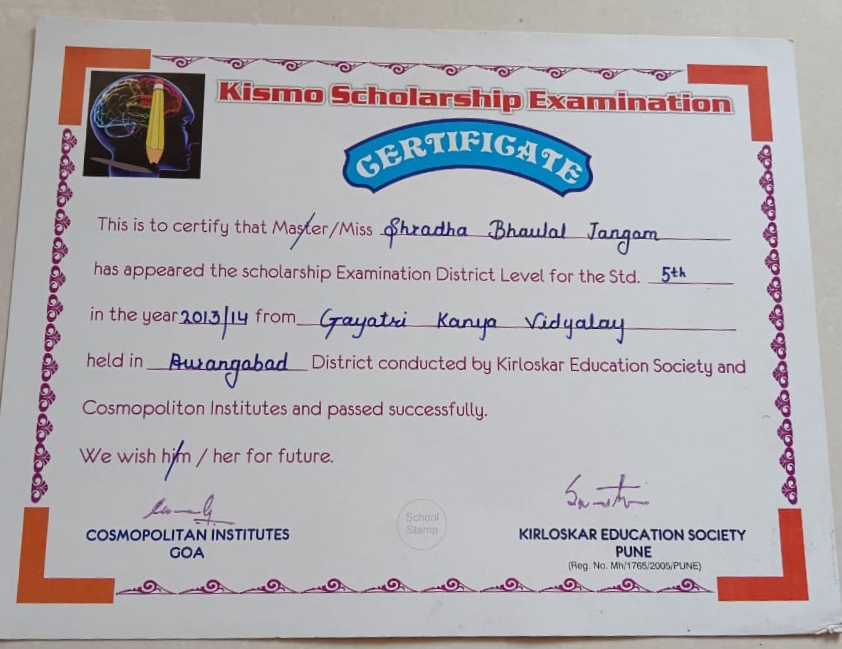 Kismo Scholarship Examination
CERTIFICATE
This is to certify that Master/Miss Shradha Bhaulal Jangam
has appeared the scholarship Examination District Level for the Std. 5th
in the year 2013/14 from Gayatri Kanya Vidyalay
held in Aurangabad District conducted by Kirloskar Education Society and
Cosmopoliton Institutes and passed successfully.
We wish him / her for future.
School
Stamp
COSMOPOLITAN INSTITUTES
GOA
KIRLOSKAR EDUCATION SOCIETY
PUNE
(Reg. No. Mh/1765/2005/PUNE)